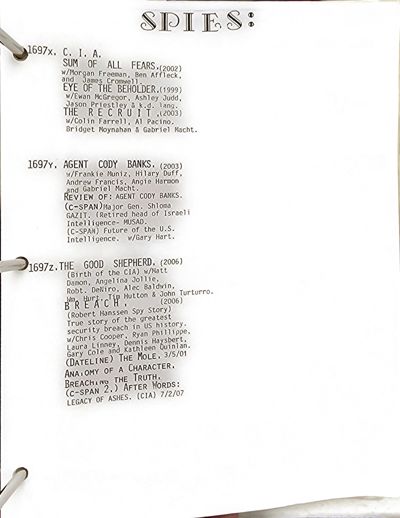 SPIES:
1697x. C. I. A.
SUM OF ALL FEARS.(2002)
w/Morgan Freeman, Ben Affleck,
and James Cromwell.
EYE OF THE BEHOLDER.(1999)
w/Ewan McGregor, Ashley Judd,
Jason Priestley & k.d. lang.
THE RECRUIT.(2003)
w/Colin Farrell, Al Pacino.
Bridget Moynahan & Gabriel Macht.
1697Y. AGENT CODY BANKS. (2003)
w/Frankie Muniz, Hilary Duff,
Andrew Francis, Angie Harmon
and Gabriel Macht.
REVIEW OF: AGENT CODY BANKS.
(C-SPAN)Major Gen. Shloma
GAZIT. (Retired head of Israeli
Intelligence- MUSAD.
(C-SPAN) Future of the U.S.
Intelligence. w/Gary Hart.
1697z.THE GOOD SHEPHERD. (2006)
(Birth of the CIA) w/Matt
Damon, Angelina Jollie,
Robt. DeNiro, Alec Baldwin,
Wm. Hurt, Tim Hutton & John Turturro.
BREACH. (2006)
(Robert Hanssen Spy Story)
True story of the greatest
security breach in US history.
w/Chris Cooper, Ryan Phillippe,
Laura Linney, Dennis Haysbert,
Gary Cole and Kathleen Quinlan.
(DATELINE) THE MOLE. 3/5/01
ANATOMY OF A CHARACTER.
BREACHING THE TRUTH.
(C-SPAN 2.) AFTER WORDS:
LEGACY OF ASHES. (CIA) 7/2/07